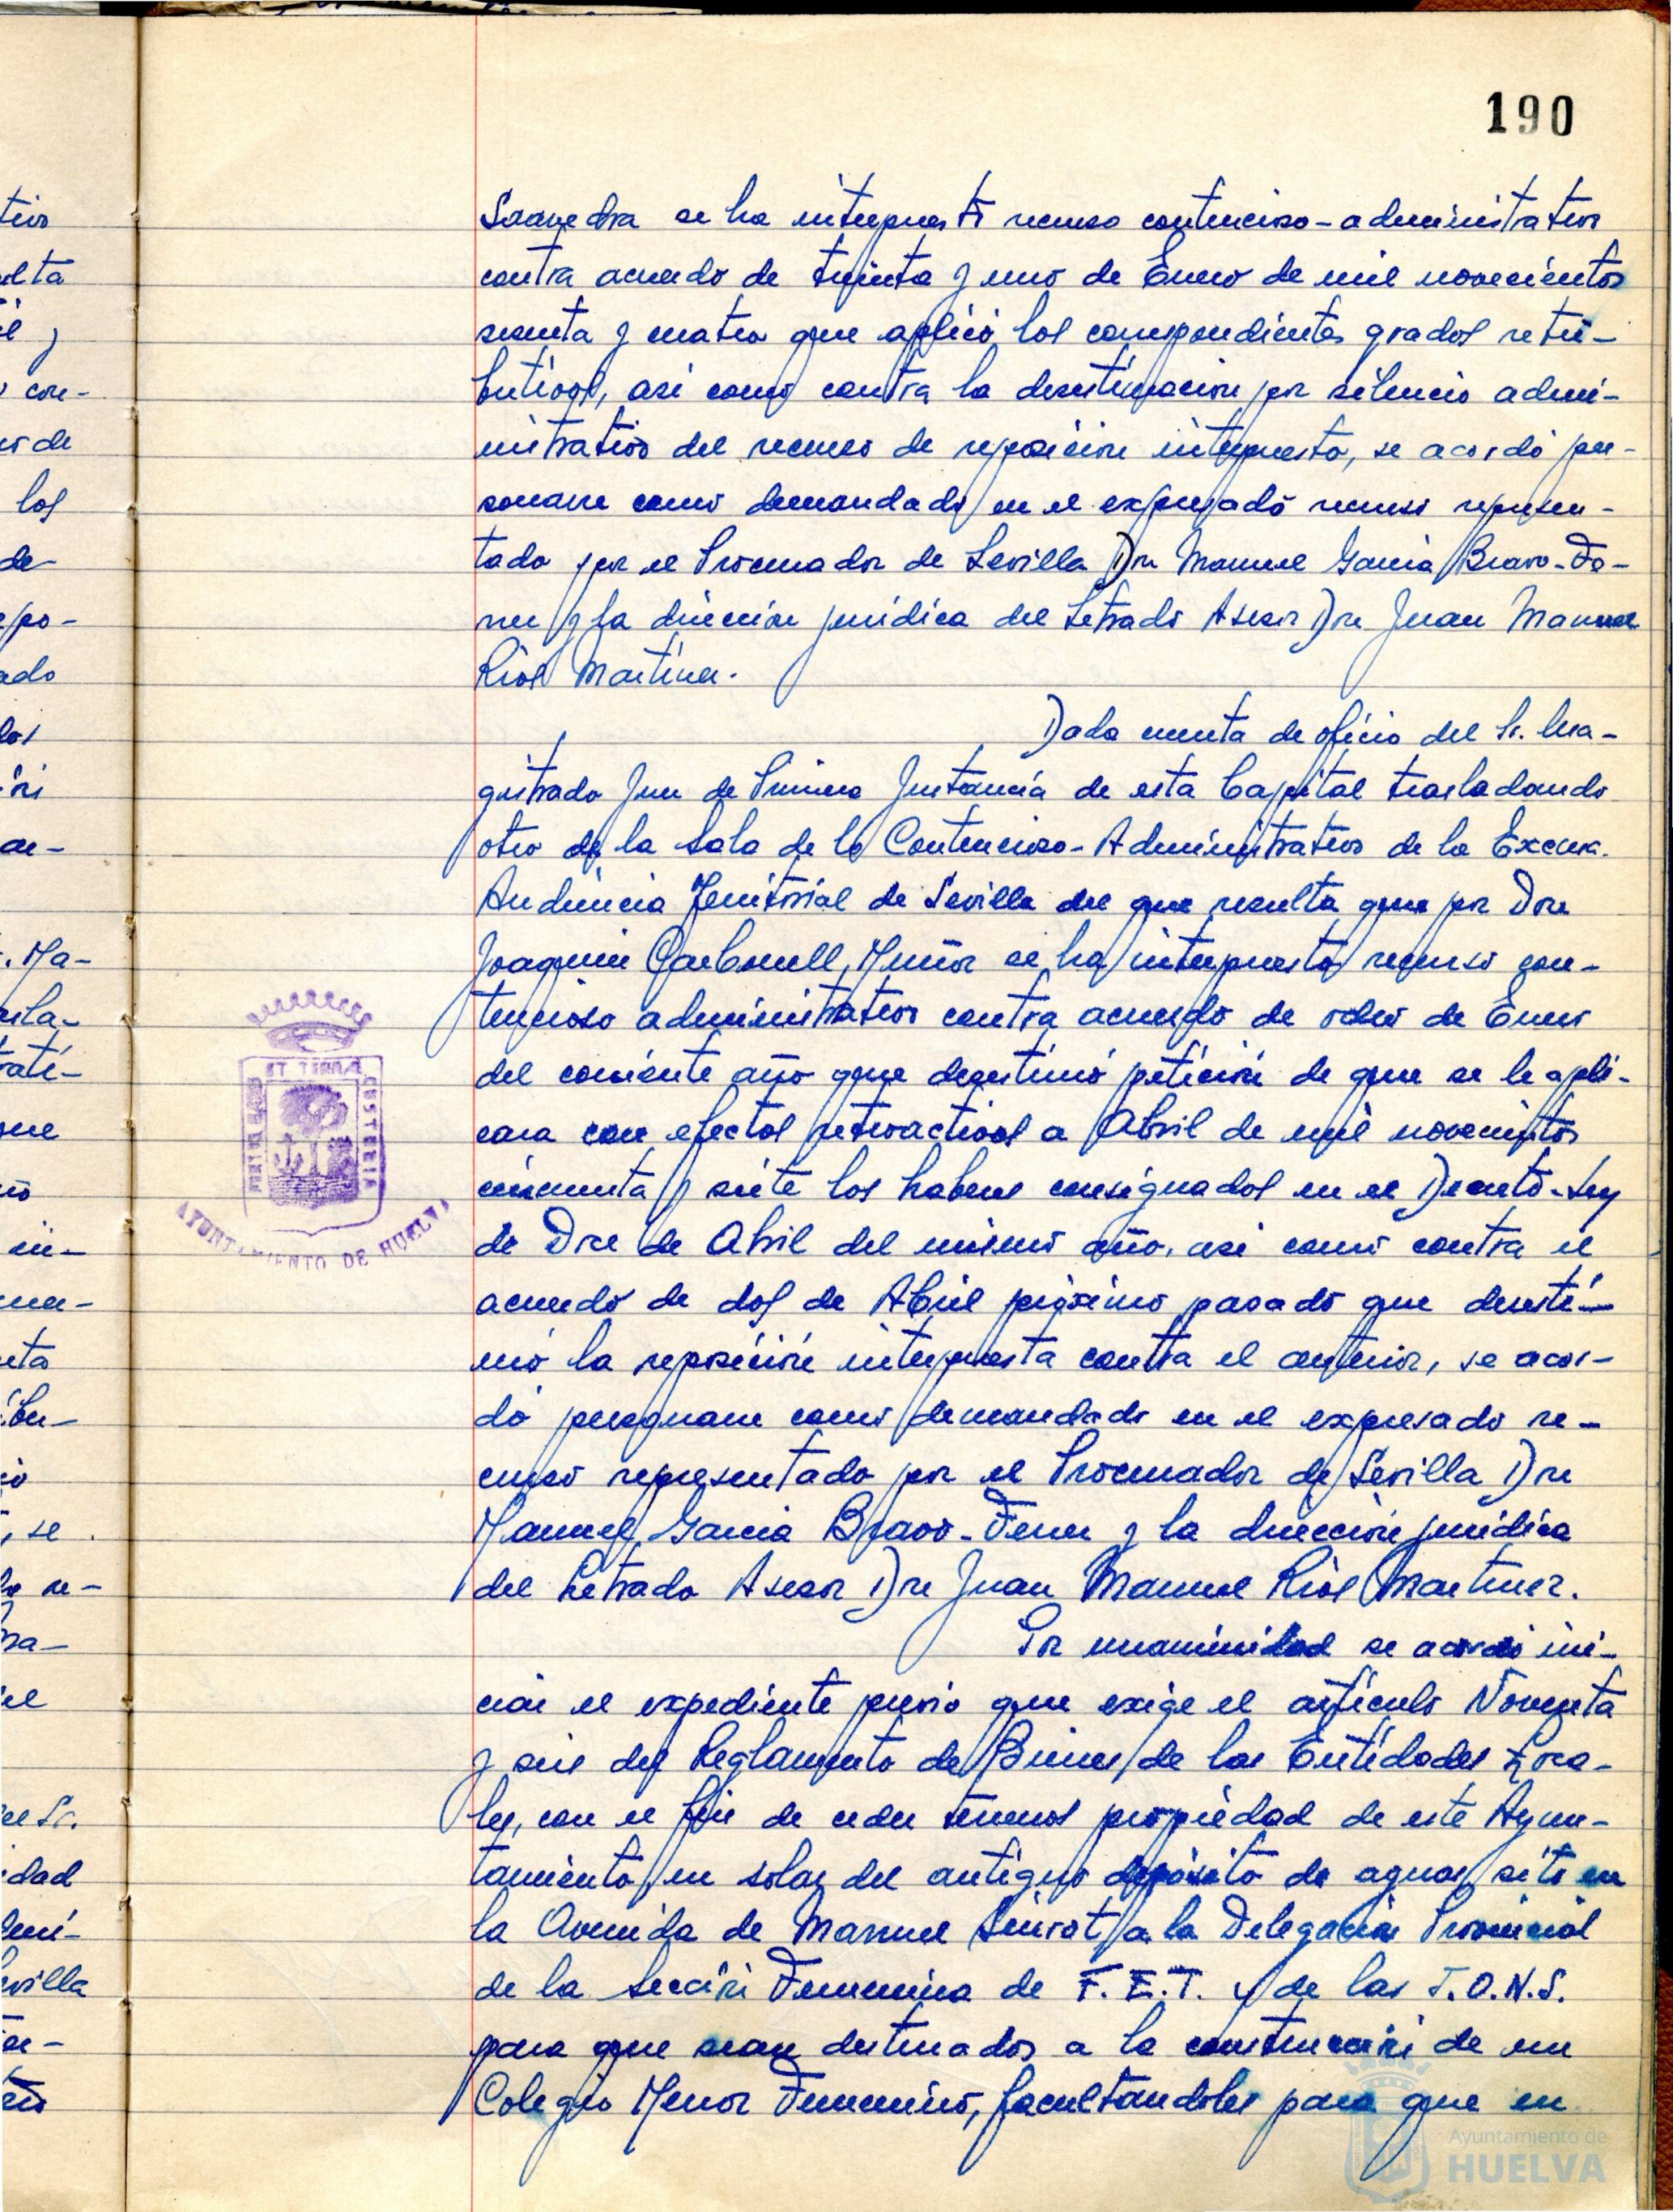 190
Saavedra se ha interpuesto recurso contencioso-administrativo
contra acuerdo de treinta y uno de Enero de mil novecientos
sesenta y cuatro que aplicó los correspondientes grados retri-
butivos, asi como contra la desestimacion por silencio admi-
nistrativo del recurso de reposicion interpuesto, se acordó per-
sonarse como demandado en el expresado recurso represen-
tado por el Procurador de Sevilla Don Manuel Garcia Bravo-Fe-
rrer y la direccion juridica del Letrado Asesor Don Juan Manuel
Rios Martinez.
Dada cuenta de oficio del Sr. Ma-
gistrado Juez de Primera Instancia de esta Capital trasladando
otro de la Sala de lo Contencioso-Administrativo de la Excma.
Audiencia Territorial de Sevilla del que resulta que por Don
Joaquin Carbonell Muñoz se ha interpuesto recurso con-
tencioso administrativo contra acuerdo de ocho de Enero
del corriente año que desestimó petición de que se le apli-
cara con efectos retroactivos a Abril de mil novecientos
cincuenta y siete los haberes consignados en el Decreto-Ley
de Doce de Abril del mismo año, asi como contra el
acuerdo de dos de Abril próximo pasado que desesti-
mó la reposición interpuesta contra el anterior, se acor-
dó personarse como demandado en el expresado re-
curso representado por el Procurador de Sevilla Don
Manuel Garcia Bravo-Ferrer y la direccion juridica
del Letrado Asesor Don Juan Manuel Rios Martinez.
Por unanimidad se acordó ini-
ciar el expediente previo que exige el artículo Noventa
y seis del Reglamento de Bienes de las Entidades Loca-
les, con el fin de ceder terrenos propiedad de este Ayun-
tamiento, en solar del antiguo depósito de aguas, sito en
la Avenida de Manuel Siurot, a la Delegacion Provincial
de la Sección Femenina de F.E.T. y de las J.O.N.S.
para que sean destinados a la construcción de un
Colegio Menor Femenino, facultandoles para que en
ET TERRAE CUSTODIA
AYUNTAMIENTO DE HUELVA
Ayuntamiento de
HUELVA